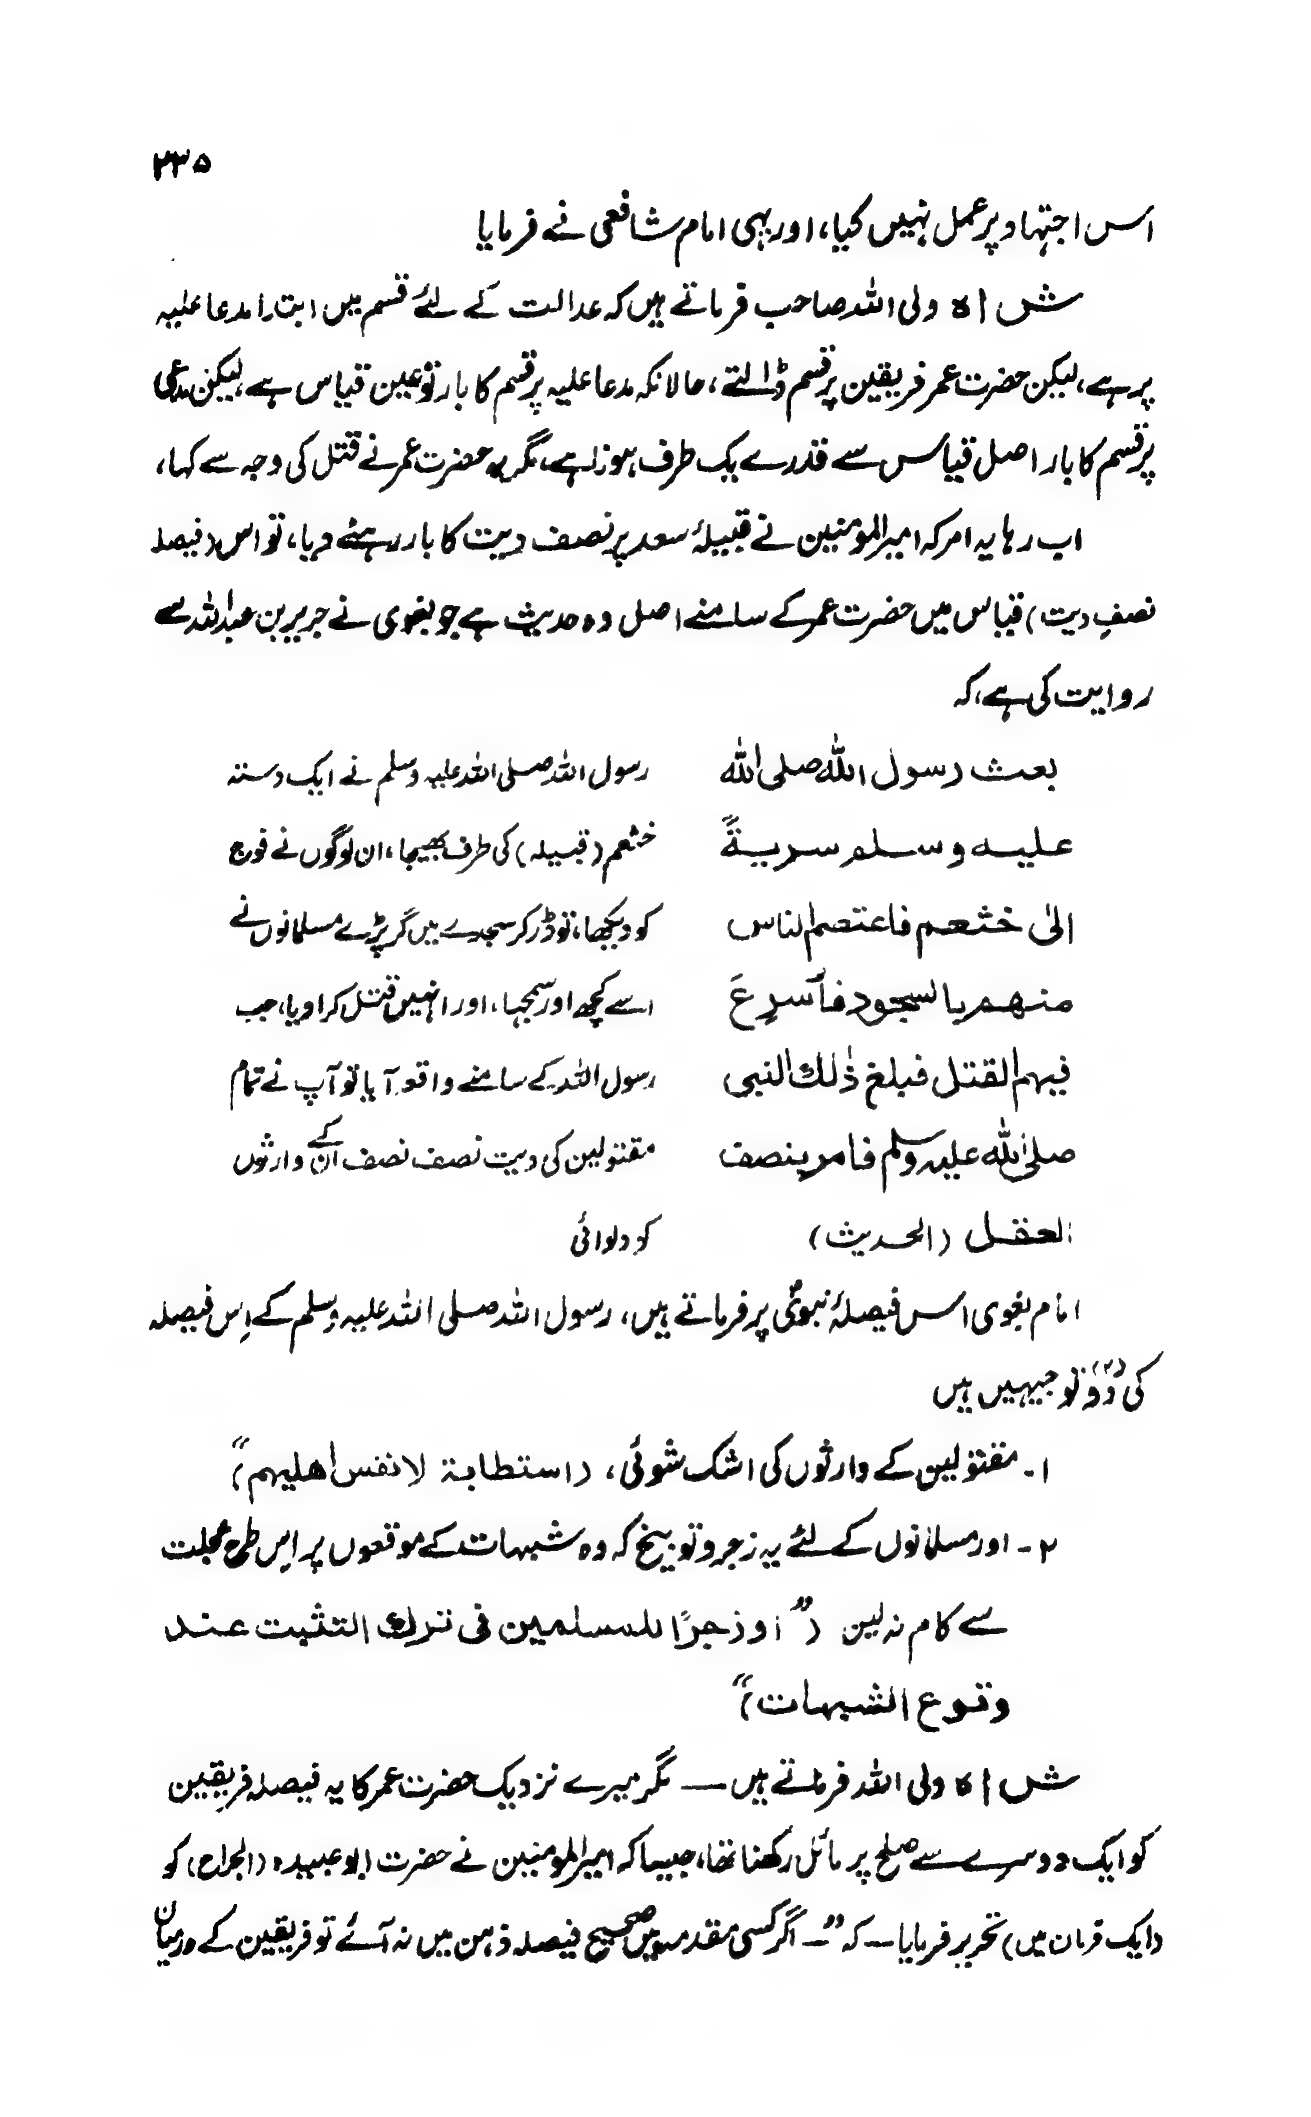 ۲۳۵
اس اجتہاد پر عمل نہیں کیا، اور یہی امام شافعی نے فرمایا
شاہ ولی اللہ صاحب فرماتے ہیں کہ عدالت کے لئے قسم میں ابتدا مدعا علیہ
پر ہے، لیکن حضرت عمر فریقین پر قسم ڈالتے، حالانکہ مدعا علیہ پر قسم کا بار تو عین قیاس ہے، لیکن مدعی
پر قسم کا بار اصل قیاس سے قدرے یک طرف ہونا ہے، مگر یہ حضرت عمر نے قتل کی وجہ سے کہا،
اب رہا یہ امر کہ امیر المومنین نے قبیلۂ سعد پر نصف دیت کا بار رہنے دیا، تو اس (فیصلہ
نصفِ دیت) قیاس میں حضرت عمر کے سامنے اصل وہ حدیث ہے جو بغوی نے جریر بن عبداللہ سے
روایت کی ہے، کہ
بعث رسول اللہ صلی اللہ
علیہ وسلم سریةً
الیٰ خثعم فاعتصم الناس
منہم بالسجود فأسرعَ
فیہم القتل فبلغ ذٰلك النبی
صلی اللہ علیہ وسلم فامر بنصف
العقل (الحدیث)
رسول اللہ صلی اللہ علیہ وسلم نے ایک دستہ
خثعم (قبیلہ) کی طرف بھیجا، ان لوگوں نے فوج
کو دیکھا، تو ڈر کر سجدے میں گر پڑے مسلمانوں نے
اسے کچھ اور سمجہا، اور انہیں قتل کرا دیا، جب
رسول اللہ کے سامنے واقعہ آیا تو آپ نے تمام
مقتولین کی دیت نصف نصف ان کے وارثوں
کو دلوائی
امام بغوی اس فیصلۂ نبویؐ پر فرماتے ہیں، رسول اللہ صلی اللہ علیہ وسلم کے اِس فیصلہ
کی دو (۲) توجیہیں ہیں
۱۔ مقتولین کے وارثوں کی اشک شوئی، (استطابة لانفس اھلیہم")
۲۔ اور مسلمانوں کے لئے یہ زجر و توبیخ کہ وہ شبہات کے موقعوں پر اِس طرح عجلت
سے کام نہ لین ("اوزجرًا للمسلمین فی ترك التثبت عند
وقوع الشبہات")
شاہ ولی اللہ فرماتے ہیں — مگر میرے نزدیک حضرت عمر کا یہ فیصلہ فریقین
کو ایک دوسرے سے صلح پر مائل رکھنا تھا، جیسا کہ امیر المومنین نے حضرت ابو عبیدہ (الجراح) کو
(ایک فرمان میں) تحریر فرمایا — کہ "— اگر کسی مقدمہ میں صحیح فیصلہ ذہن میں نہ آئے تو فریقین کے درمیان